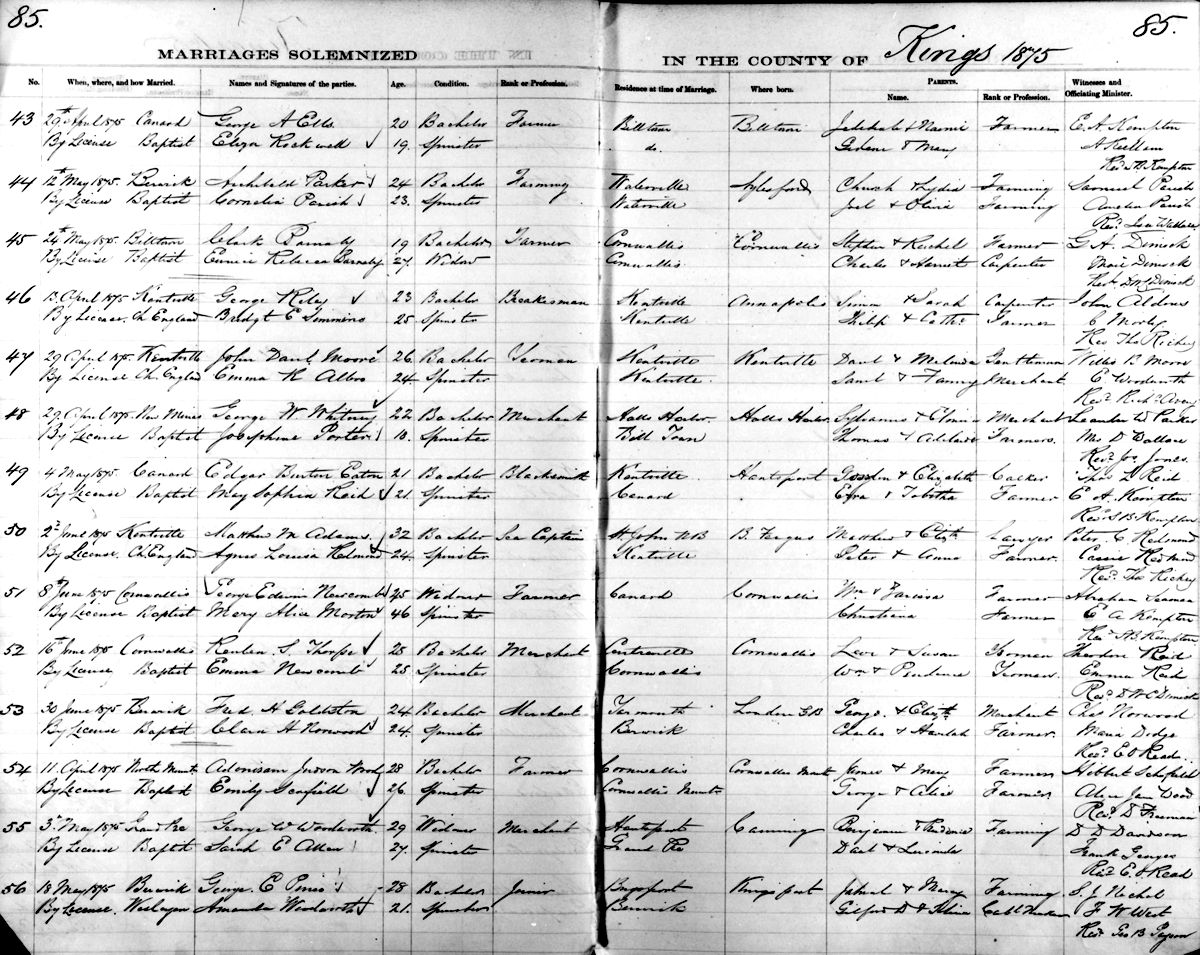 85.
85.
MARRIAGES SOLEMNIZED IN THE COUNTY OF Kings 1875
No. When, where, and how Married. Names and Signatures of the parties. Age. Condition. Rank or Profession. Residence at time of Marriage. Where born. PARENTS. Name. Rank or Profession. Witnesses and Officiating Minister.
43 29th April 1875 Canard George A Ells 20 Bachelor Farmer Billtown Billtown & Naomi Farmer E. A. Kempton
By License Baptist Eliza Rockwell 19. Spinster do. & Mary
Kempton
44 12th May 1875. Berwick Archibald Parker 24 Bachelor Farming Waterville Aylesford Church & Lydia Farming Samuel Parish
By License Baptist Cornelia Parish 23. Spinster Waterville Joel & Olivia Farming Amelia Parish
Revd Isa Wallace
45 24th May 1875. Billtown Clark Barnaby 19 Bachelor Farmer Cornwallis Cornwallis Stephen & Rachel Farmer G A. Dimock
By License Baptist Eunice Rebecca Barnaby 27. Widow Cornwallis Charles & Harriet Carpenter Dimock
Revd D W C Dimock
46 13 April 1875 Kentville George Riley 23 Bachelor Breakesman Kentville Annapolis Simon & Sarah Carpenter John Aldous
By License. Ch England Bridgt E Simmins 25 Spinster Kentville Philip & Cathe Farmer C Morly
Rev Tho Richey
47 29 April 1875. Kentville John Danl Moore 26. Bachelor Yeoman Kentville Kentville Danl & Melinda Gentleman B Moore
By License Ch. England Emma R Albro 24. Spinster Kentville. Saml & Fanny Merchant E. Woodworth
Revd Richd Avery
48 29 April 1875. New Minas George W Whitney 22 Bachelor Merchant Halls Harbor Halls Harbor Sylvanus & Merchant Leander W Parker
By License Baptist Josephine Porter 18. Spinster Bill Town Thomas & Adelaide Farmers. Mrs D Wallace
Revd Jos Jones.
49 4 May 1875. Canard Edgar Burton Eaton 21 Bachelor Blacksmith Kentville. Hantsport Gordon & Elizabeth Calker Thos L Reid
By License Baptist May Sophia Reid 21. Spinster Canard Ezra & Tabitha Farmer E A. Kempton
Revd S B. Kempton
50 2d June 1875 Kentville Matthew M Adams 32 Bachelor Sea Captain St John NB B. Fergus Matthew & Elizth Lawyer Peter. C Redmond
By License. Ch England Agnes Louisa Redmond 24. Spinster Kentville Peter & Anna Farmer. Cassie Redmond
Revd Tho Richey
51 8th June 1875 Cornwallis George Edwin Newcomb 45 Widower Farmer Canard Cornwallis Wm & Farmer Abraham
By License Baptist Mary Alice Morton 46 Spinster Christiana Farmer E A Kempton
Revd S B. Kempton
52 16th June 1875 Cornwallis Reuben S. Thorpe 28 Bachelor Merchant Centreville Cornwallis Levi & Susan Yeoman Theodore Reid
By License Baptist Emma Newcomb 25. Spinster Cornwallis. Wm & Prudence Yeoman. Emma Reid
Revd D W C Dimock
53 30 June 1875 Berwick Fred. H Goldston 24 Bachelor Merchant Yarmouth London G B George. & Elizth Merchant Chas Norwood
By License Baptist Clara H Norwood 24. Spinster Berwick Charles & Hannah Farmer. Maria Dodge
Revd E O Read.
54 11 April 1875 North Mount Adoniram Judson Wood 28 Bachelor Farmer Cornwallis Cornwallis Mount James & Mary Farmer Hibbert Schofield
By License Baptist Emily Scofield 26. Spinster Cornwallis Mount George & Alice Farmer Alice Jane Wood
Revd D Freeman
55 3d May 1875 Grand Pre George W Woodworth 29 Widower Merchant Hantsport Canning Benjamin & Prudence Farming D D Davidson
By License Baptist Sarah E Allen 27. Spinster Grand Pre Danl & Lucinda Frank Georges
Revd E O Read
56 18 May 1875 Berwick George. E Pineo 28 Bachelor Joiner Kingsport & Mary Farming S. J Nichol
By License. Wesleyan Amanda Woodworth 21. Spinster. Berwick Gilford D & F W West
Revd Geo B Payson